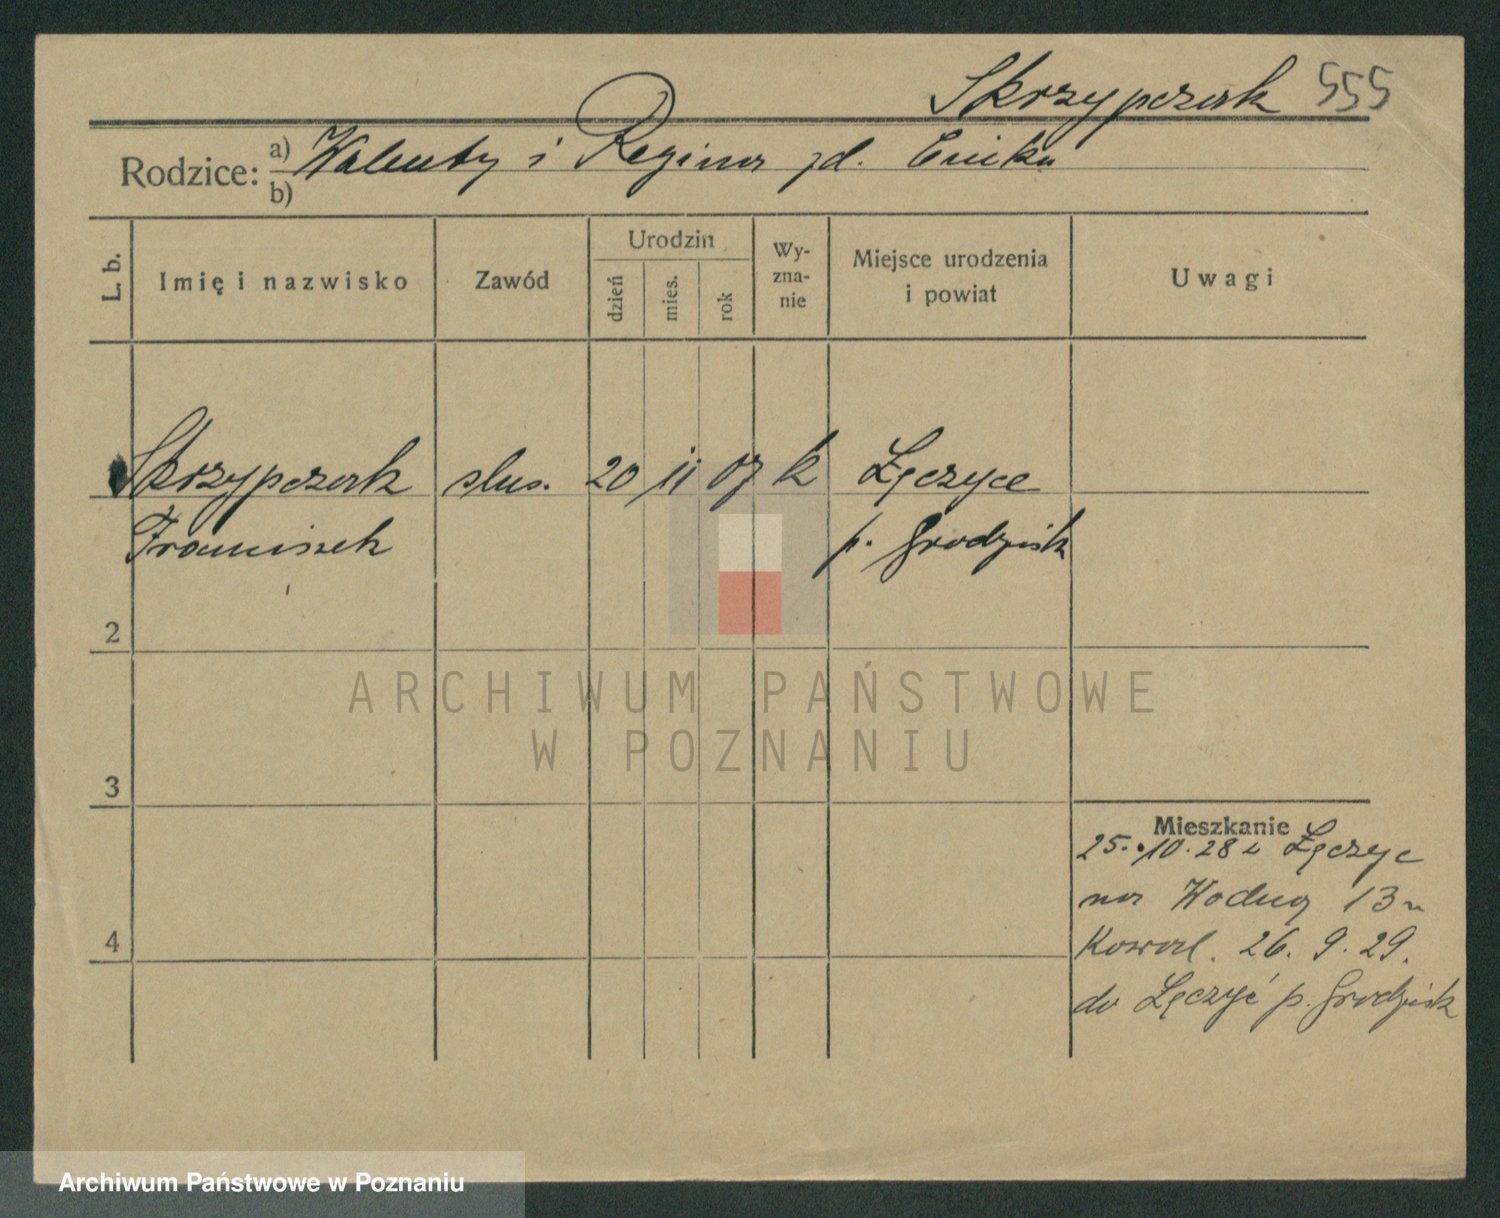 Skrzypczak 555
Rodzice: a) Walenty i Regina zd.
b)
L. b.
Imię i nazwisko
Zawód
Urodzin
dzień
mies.
rok
Wy-
zna-
nie
Miejsce urodzenia
i powiat
Uwagi
Skrzypczak slus. 20 11 07 k Łęczyce
Franciszek p. Grodzisk
2
3
4
ARCHIWUM PAŃSTWOWE
W POZNANIU
Mieszkanie
25. 10. 28 z Łęczyc
na Wodną 13 u
Kowal. 26. 9. 29.
do Łęczyc p. Grodzisk
Archiwum Państwowe w Poznaniu